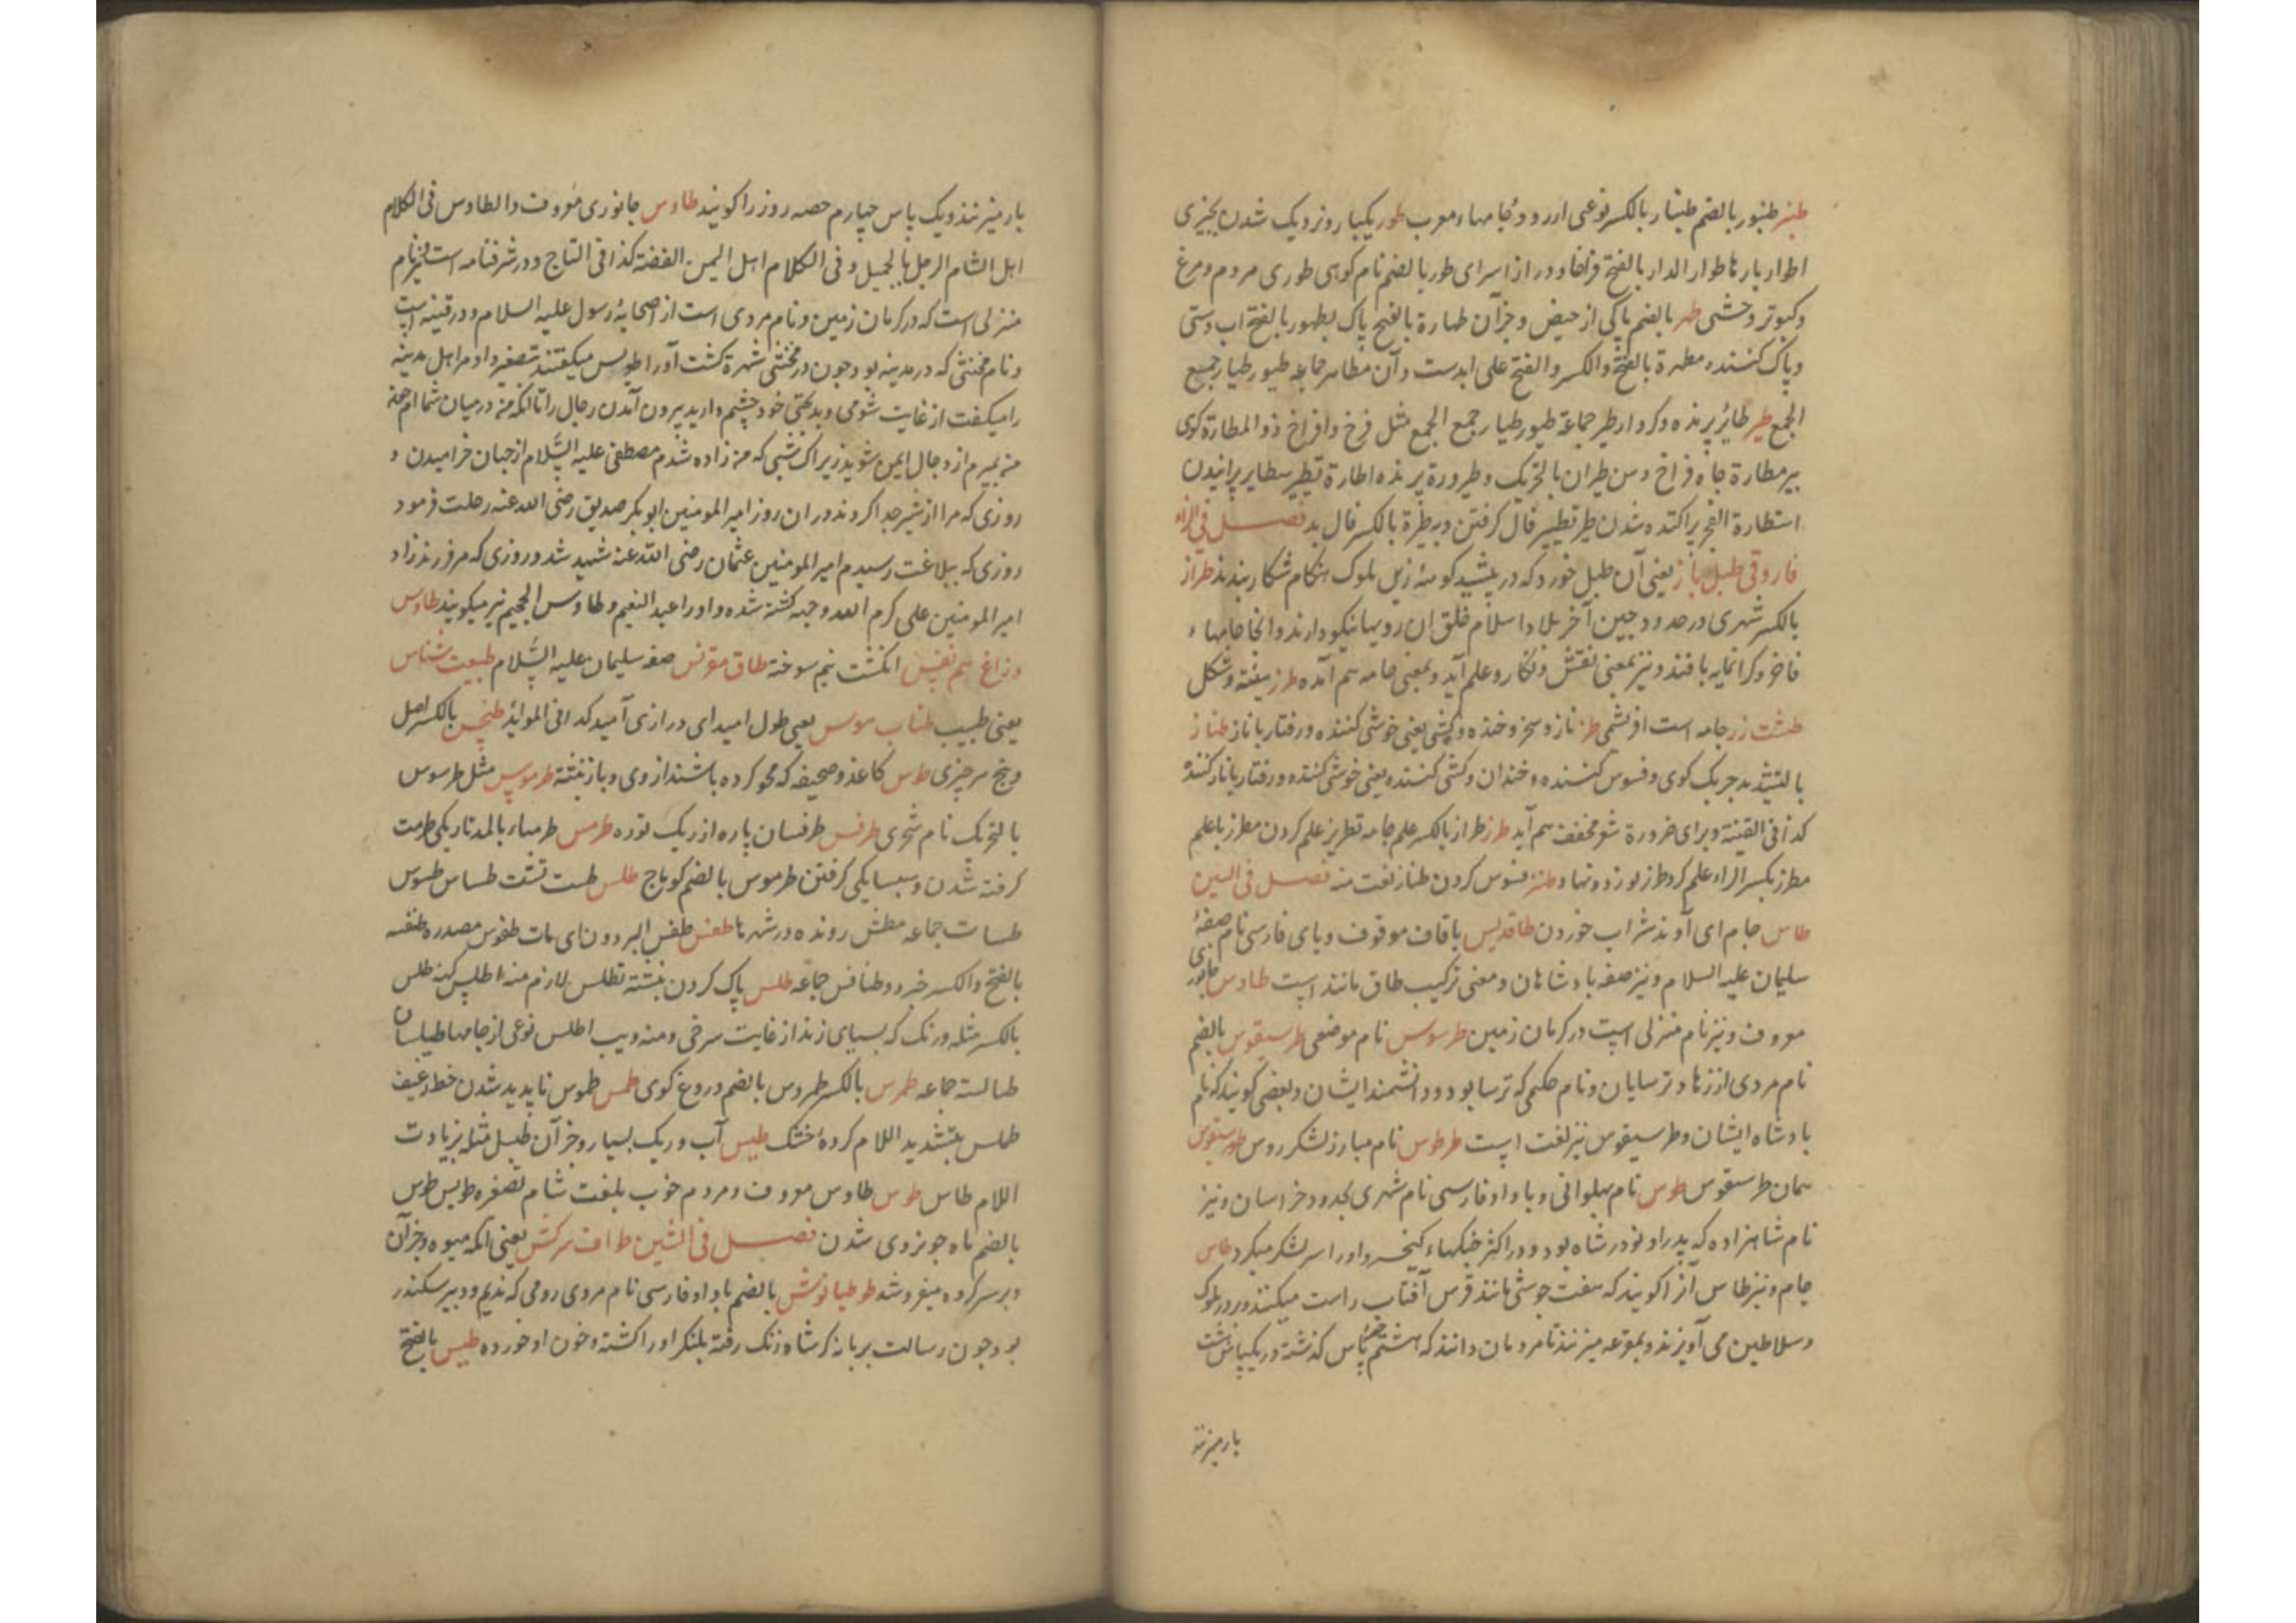 طنبر طنبور بالضم طنبار بالکسر نوعی از رود و جامهاء معرب طور یکبار و نزدیک شدن بچیزی
اطوار بارها طوار الدار بالفتح فراخا و دراز اسرای طور بالضم نام کوهی طوری مردم و مرغ
و کبوتر وحشی طهر بالضم پاکی از حیض و جز آن طهارة بالفتح پاک طهور بالفتح اب دستی
و پاک کننده مطهرة بالفتح والکسر والفتح علی ابدست دآن مطاهر جماعه طیور طیار جمیع
الجمع طیر طائر پرنده و کردار طیر جماعة طیور طیار جمع الجمع مثل فرخ و افراخ ذو المطارة کوی
بیر مطارة چاه فراخ دهن طیران بالتحریک و طیرورة پریدن اطارة تطییر مطایر پرانیدن
استطارة الفجر پراکنده شدن طیر تطییر فال گرفتن و به طیرة بالکسر فال بد فصل فی الزاء
فاروقی طبل باز یعنی آن طبل خورد که در پیشید کوهه زین ملوک هنکام شکار بندند طراز
بالکسر شهری در حدود چین آخر بلاد اسلام خلق ان رویها نیکو دارند و انجا جامهاء
فاخر و کرانمایه بافند و نیز بمعنی نقش و نکار و علم آید و بمعنی جامه هم آمده طرز هیئة و شکل
طشت زر جامه است ابریشمی طنز ناز و سخر و خنده و کشی یعنی خوشی کننده و رفتار با ناز طناز
بالتشدید چربک کوی و فسوس کننده و خندان و کشی کننده یعنی خوشی کننده و رفتار بانار کننده
کذا فی القنیة و برای ضرورة شعر مخفف هم آید طرز طراز بالکسر علم جامه تطریز علم کردن مطرز باعلم
مطرز بکسر الراء علم کر طنز فسوس کردن طناز نعت منه فصل فی السین
طاس جام ای آوند شراب خوردن طاقدیس باقاف موقوف و یای فارسی نام صفهٔ
سلیمان علیه السلام و نیز صفه بادشاهان و معنی ترکیب طاق مانند است طاوس جانور
معروف و نیز نام منزلی است در کرمان زمین طرسوس نام موضعی طرسیقوس بالضم
نام مردی از ترسایان و نام حکمی که ترسا بود و دانشمند ایشان و بعضی کویند که نام
بادشاه ایشان و طرسیقوس نیز لغت است طرطوس نام مبارز لشکر روس طورسیقوس
همان طرسیقوس طوس نام پهلوانی و با واو فارسی نام شهری بحدود خراسان و نیز
نام شاهزاده که پدر او نودر شاه بود و در اکثر جنکهاء کیخسرو او را سر لشکر میکرد طاس
جام و نیز طاس آنرا کویند که هفت جوشی مانند قرص آفتاب راست میکنند و در در ملوک
و سلاطین می آویزند و بموقعه میزنند تا مردمان دانند که هشتم پاس کذشته و در یکپاس هشت
بار میزنند
بار میزنند و یک پاس چهارم حصه روز را کویند طاوس جانوری معروف والطاوس فی الکلام
اهل الشام الرجل الجمیل و فی الکلام اهل الیمن الفضة کذا فی التاج و در شرفنامه است نیز نام
منزلی است که در کرمان زمین و نام مردی است از صحابهٔ رسول علیه السلام و در قنیه است
و نام مخنثی که در مدینه بود چون در مخنثی شهرة کشت آورا طویس میکفتند تصغیر و او مر اهل مدینه
را میکفت از غایت شومی و بدبختی خود چشم دارید بیرون آمدن رجال را تا انکه من در میان شما ام چون
من بمیرم از دجال ایمن شوید زیراک شبی که من زاده شدم مصطفی علیه السلام از جهان خرامیدن و
روزی که مرا از شیر جدا کردند در ان روز امیر المومنین ابو بکر صدیق رضی الله عنه رحلت فرمود
روزی که ببلاغت رسیدم امیر المومنین عثمان رضی الله عنه شهید شد و روزی که مرا فرزند زاد
امیر المومنین علی کرم الله وجهه کشته شده و اورا عبد النعیم و طاوس الجحیم نیز میکویند طاوس
و زاغ هم نفس انکشت نیم سوخته طاق مقرنس صفه سلیمان علیه السلام طبیعت شناس
یعنی طبیب طناب موس یعنی طول امید ای درازی آمید کذا فی الموائد طنجس بالکسر اصل
و بیخ هر چیزی طرس کاغذ و صحیفه که محو کرده باشند از وی و باز نبشته طرموس مثل طرسوس
بالتحریک نام شهری طرفس طرفسان پاره از ریک توره طرمس طرمساء بالمد تاریکی طرمست
کرفته شدن و سیاهی کرفتن طرموس بالضم کوماج طلس طست تشت طساس طسوس
طسات جماعه مطش رونده در شهرها طفس طفس البردون ای مات طفوس مصدره طنفسه
بالفتح والکسر خرد و طنافس جماعه طلس پاک کردن نبشته تطلس لازم منه اطلس کهنه طلس
بالکسر مثله و رنک که بسیاهی زند از غایت سرخی و منه ذیب اطلس نوعی از جامها طیلسان
طیالسة جماعه طمرس بالکسر طمروس بالضم دروغ کوی طمس طموس ناپدید شدن خط رغیف
طملس بتشدید اللام کردهٔ خشک طیس آب و ریک بسیار و جز آن طیسل مثله بزیادت
اللام طاس طوس طاوس معروف و مردم خوب بلغت شام تصغره طویس طوس
بالضم ماه چو بزوی شدن فصل فی الشین طواف سرکش یعنی آنکه میوه و جز آن
بر سر کرده میفروشد طوطیانوش بالضم باواو فارسی نام مردی رومی که ندیم و دبیر سکندر
بود چون رسالت بر شاه زنک رفته بلنکر اورا کشته و خون او خورده طیس بالفتح